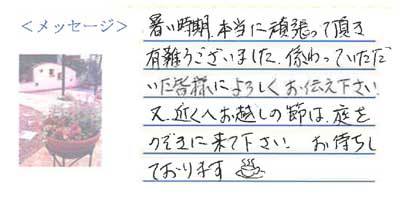 ＜メッセージ＞
暑い時期、本当に頑張って頂き
有難うございました。係わっていただ
いた皆様によろしくお伝え下さい。
又、近くへお越しの節は、庭を
のぞきに来て下さい。お待ちし
ております